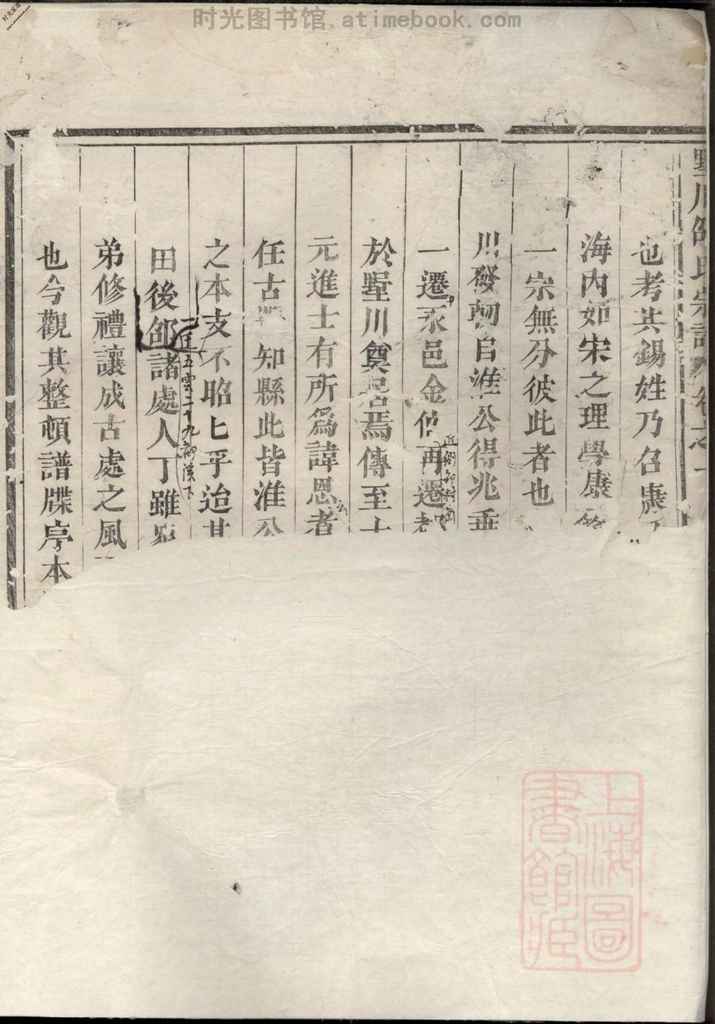 时光图书馆.atimebook.com
墅川邵氏宗譜 卷之一
也考其錫姓乃召康
海內如宋之理學康
一宗無分彼此者也
川發軔自淮公得兆垂
一遷永邑金 再遷
於墅川奠居焉傳至
元進士有所為諱恩者
任古 知縣此皆淮公
之本支不昭匕乎迨其
田後邵諸處人丁雖
弟修禮讓成古處之風
也今觀其整頓譜牒序本
上海圖
書館藏